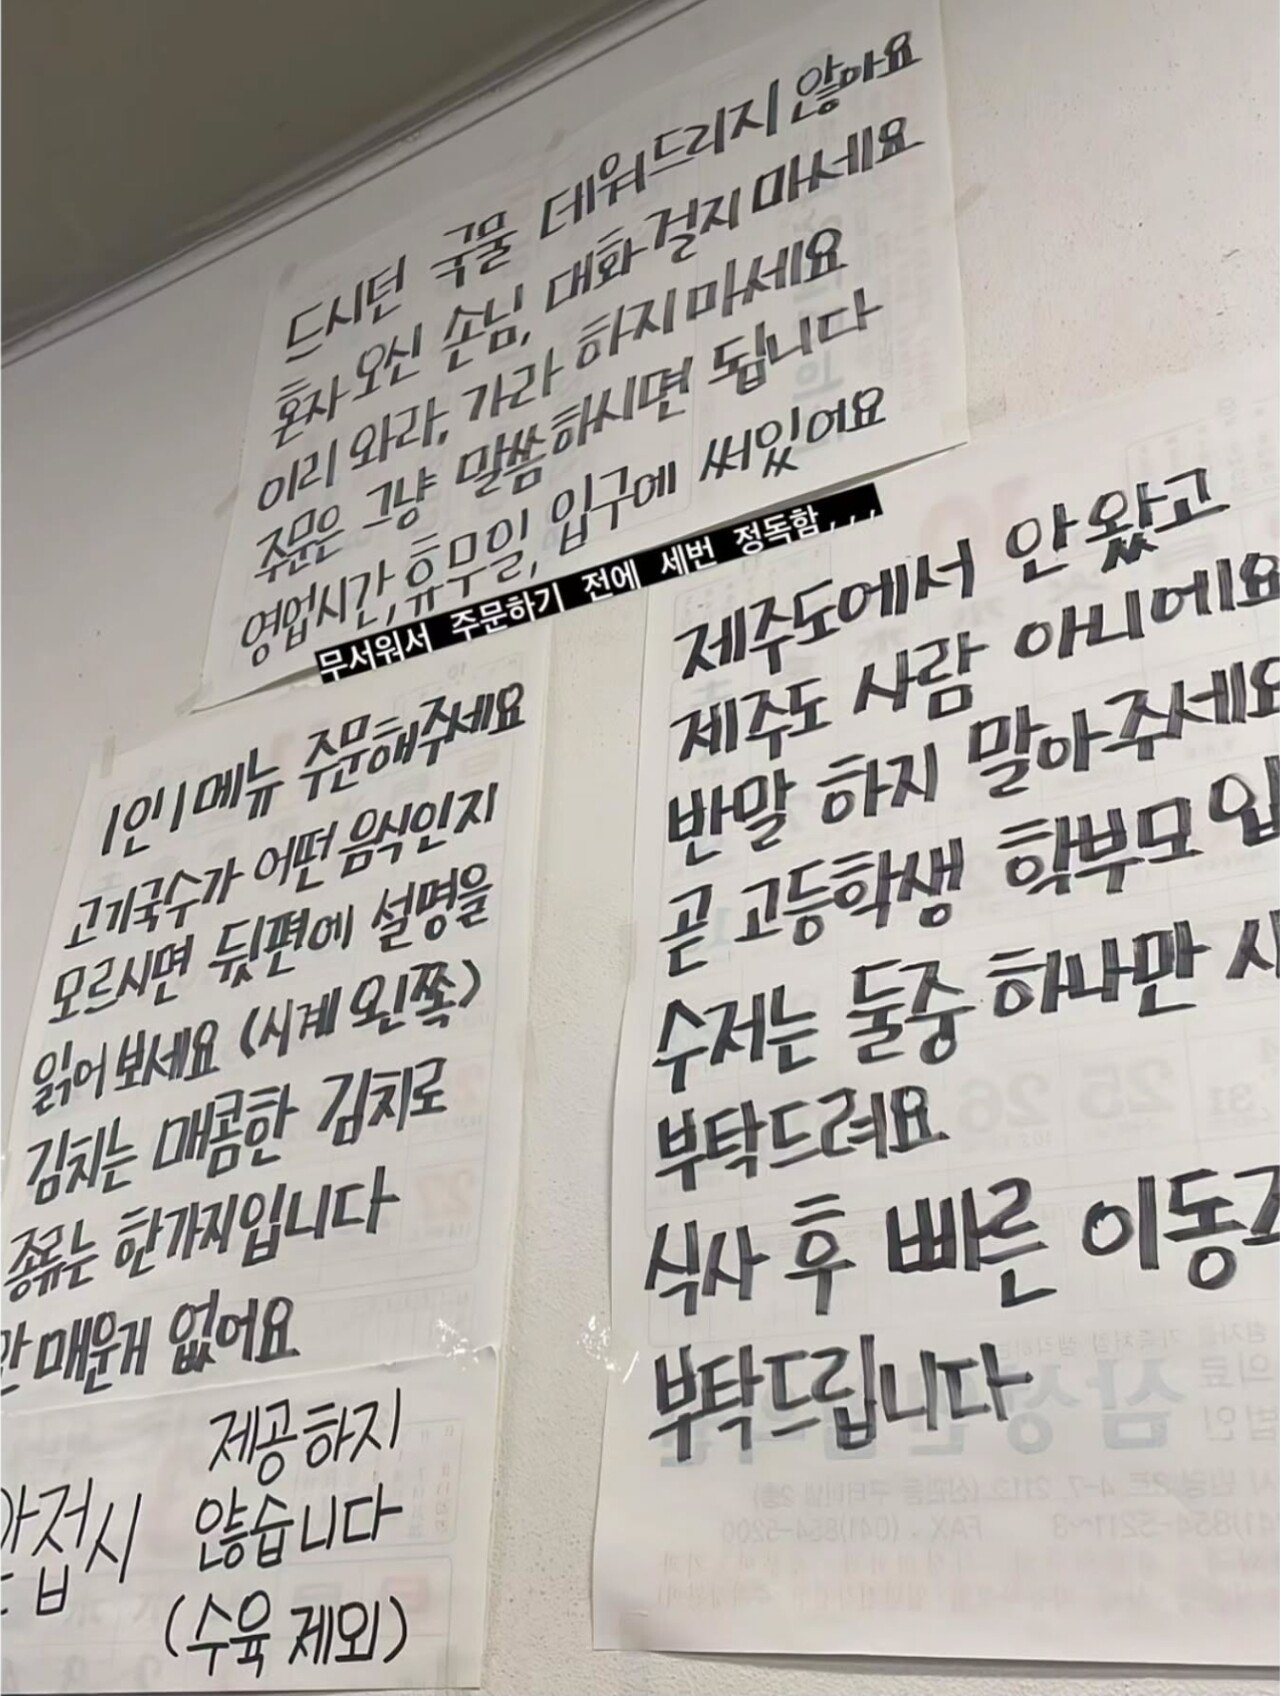 드시던 국물 데워드리지 않아요
혼자 오신 손님, 대화 걸지 마세요
이리 와라, 가라 하지 마세요
주문은 그냥 말씀하시면 됩니다
영업시간, 휴무일, 입구에 써있어요
무서워서 주문하기 전에 세번 정독함,,,
1인 1메뉴 주문해주세요
고기국수가 어떤 음식인지
모르시면 뒷편에 설명을
읽어 보세요 (시계 왼쪽)
김치는 매콤한 김치로
종류는 한가지입니다
매운게 없어요
제공하지
앞접시 않습니다
(수육 제외)
제주도에서 안 왔고
제주도 사람 아니에요
반말 하지 말아주세요
곧 고등학생 학부모 입
수저는 둘중 하나만 사
부탁드려요
식사 후 빠른 이동
부탁드립니다